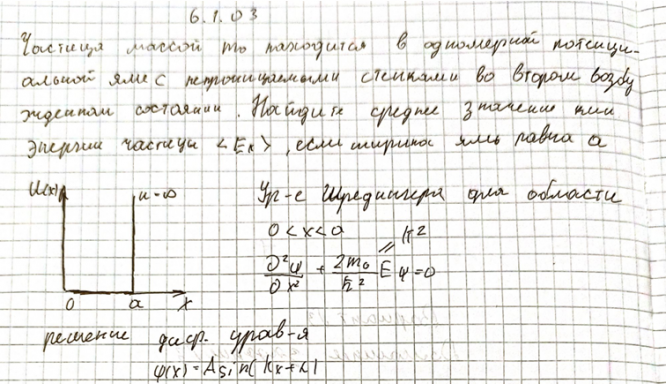 6.1.03
Частица массой m₀ находится в одномерной потенци-
альной яме с непроницаемыми стенками во втором возбу
жденном состоянии. Найдите среднее значение кин
энергии частицы <Eк>, если ширина ямы равна a
U(x) u=∞
Ур-е Шредингера для области
0<x<a
k²
∂²ψ/∂x² + 2m₀/ħ² E ψ=0
0 a x
решение диф. урав-я
ψ(x)=A sin(kx+α)